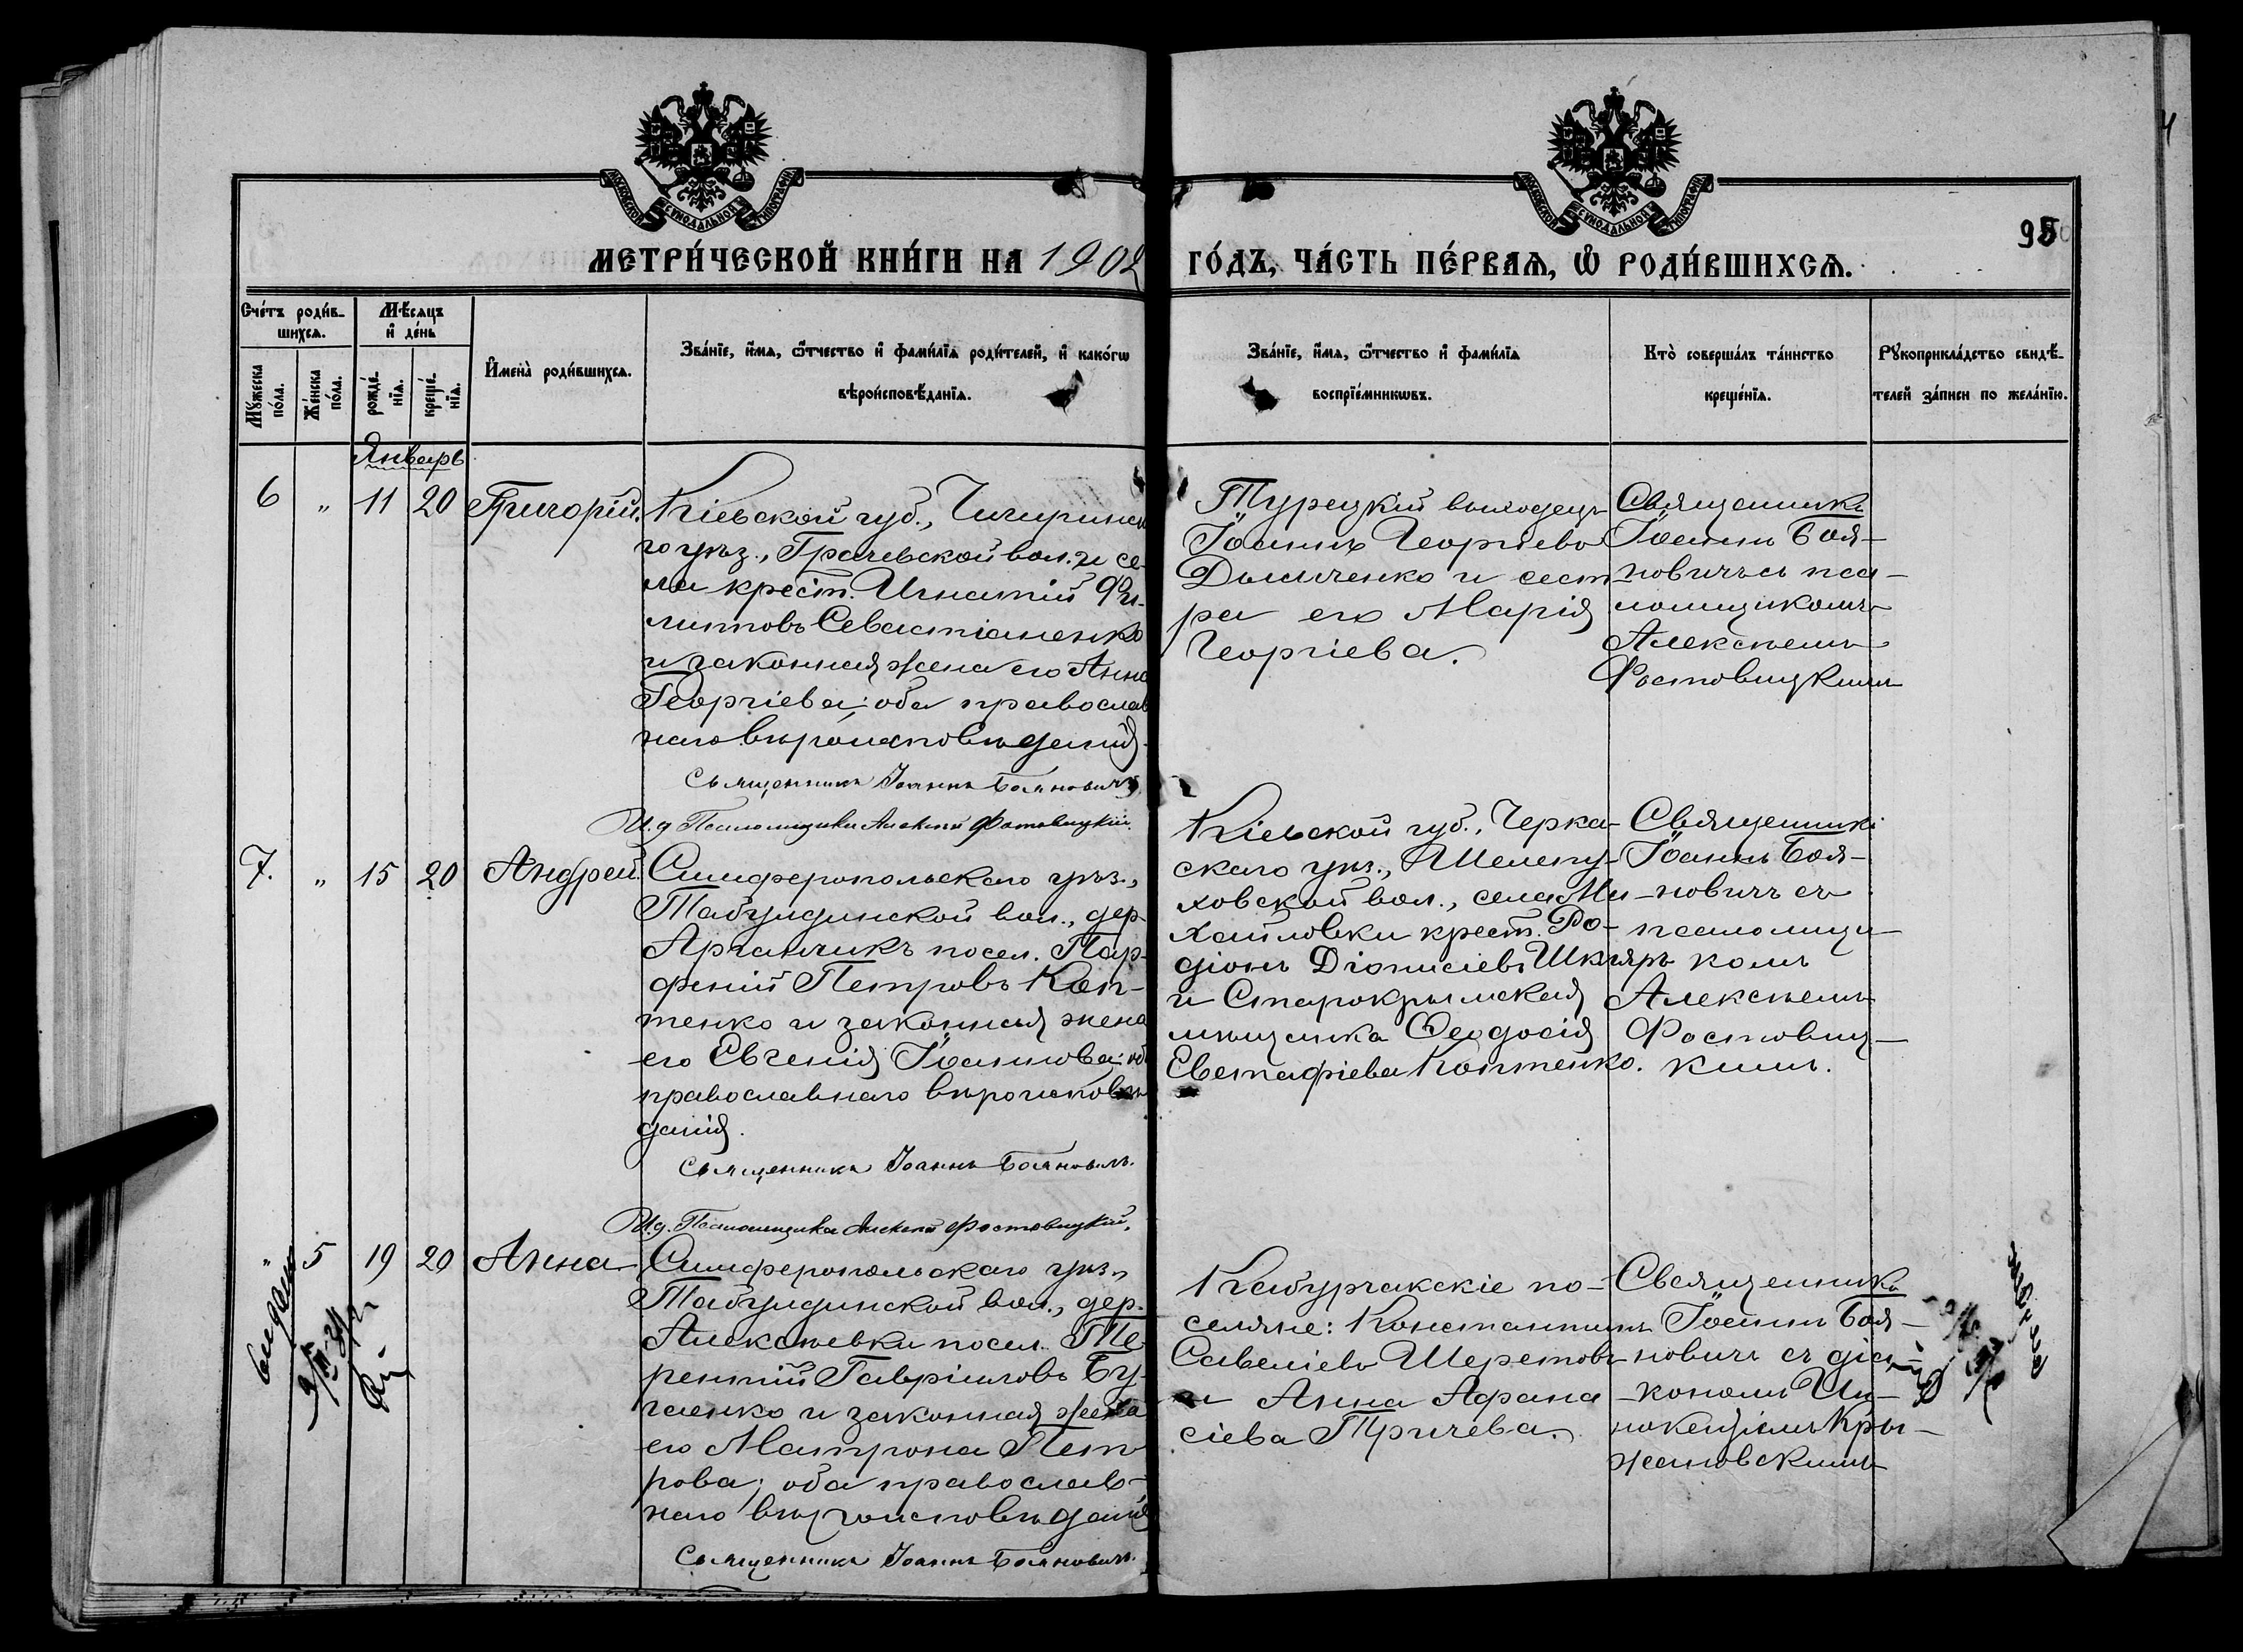 МОСКОВСКОЙ СѴНОДАЛЬНОЙ ТИПОГРАФІИ
МОСКОВСКОЙ СѴНОДАЛЬНОЙ ТИПОГРАФІИ
95
МЕТРИ́ЧЕСКОЙ КНИ́ГИ НА 1902 ГО́ДЪ, ЧА́СТЬ ПЕ́РВАѦ, Ѡ РОДИ́ВШИХСѦ.
Сче́тъ роди́в-
шихсѧ.
Мꙋ́жеска
по́ла.
Же́нска
по́ла.
Мѣ́сѧцъ
и де́нь
рожде́-
нїѧ.
креще́-
нїѧ.
Имена̀ роди́вшихсѧ.
Зва́нїе, и́мѧ, ѻ́тчество и фами́лїѧ роди́телей, и како́гѡ
вѣроисповѣ́данїѧ.
Зва́нїе, и́мѧ, ѻ́тчество и фами́лїѧ
воспрїе́мникѡвъ.
Кто̀ соверша́лъ та́инство
креще́нїѧ.
Рꙋкоприкла́дство свидѣ́-
телей за́писи по жела́нїю.
Январь
6 " 11 20 Григорій.
Кіевской губ., Чигиринска
го уѣз., Грачевской вол. и се-
ла крест. Игнатій Фи-
липповъ Севастіаненко
и законная жена его Анна
Георгіева; оба православ
наго вѣроисповѣданія.
Священникъ Іоаннъ Бояновичъ
И.д. Псаломщика Алексѣй Фастовицкій.
Турецкій выходецъ
Іоаннъ Георгіевъ
Дымченко и сест-
ра его Марія
Георгіева.
Священникъ
Іоаннъ Боя-
новичъ съ пса-
ломщикомъ
Алексѣемъ
Фастовицкимъ
7. " 15 20 Андрей.
Симферопольскаго уѣз.,
Табулдинской вол., дер.
Аргинчикъ посел. Пар-
феній Петровъ Коп-
тенко и законная жена
его Евгенія Іоаннова; об
православнаго вѣроисповѣ
данія.
Священникъ Іоаннъ Бояновичъ.
И.д. Псаломщика Алексѣй Фастовицкій.
Кіевской губ., Черка-
скаго уѣз., Шелепу-
ховской вол., села Ми-
хайловки крест. Ро-
діонъ Діонисіевъ Шкляръ
и Старокрымская
мѣщанка Ѳеодосія
Евстафіева Коптенко.
Священникъ
Іоаннъ Боя-
новичъ съ
псаломщи-
комъ
Алексѣемъ
Фастовиц-
кимъ.
" 5 19 20 Анна
Симферопольскаго уѣз.,
Табулдинской вол., дер.
Алексѣевки посел. Те-
рентій Гавріиловъ Бу-
гаенко и законная жена
его Матрона Пет-
рова; оба православ-
наго вѣроисповѣданія
Священникъ Іоаннъ Бояновичъ.
Кабурчакскіе по-
селяне: Константинъ
Савеліевъ Шереметовъ
и Анна Афана
сіева Тричева.
Священникъ
Іоаннъ Боя-
новичъ съ діа-
кономъ Ин-
нокентіемъ Кры-
жановскимъ